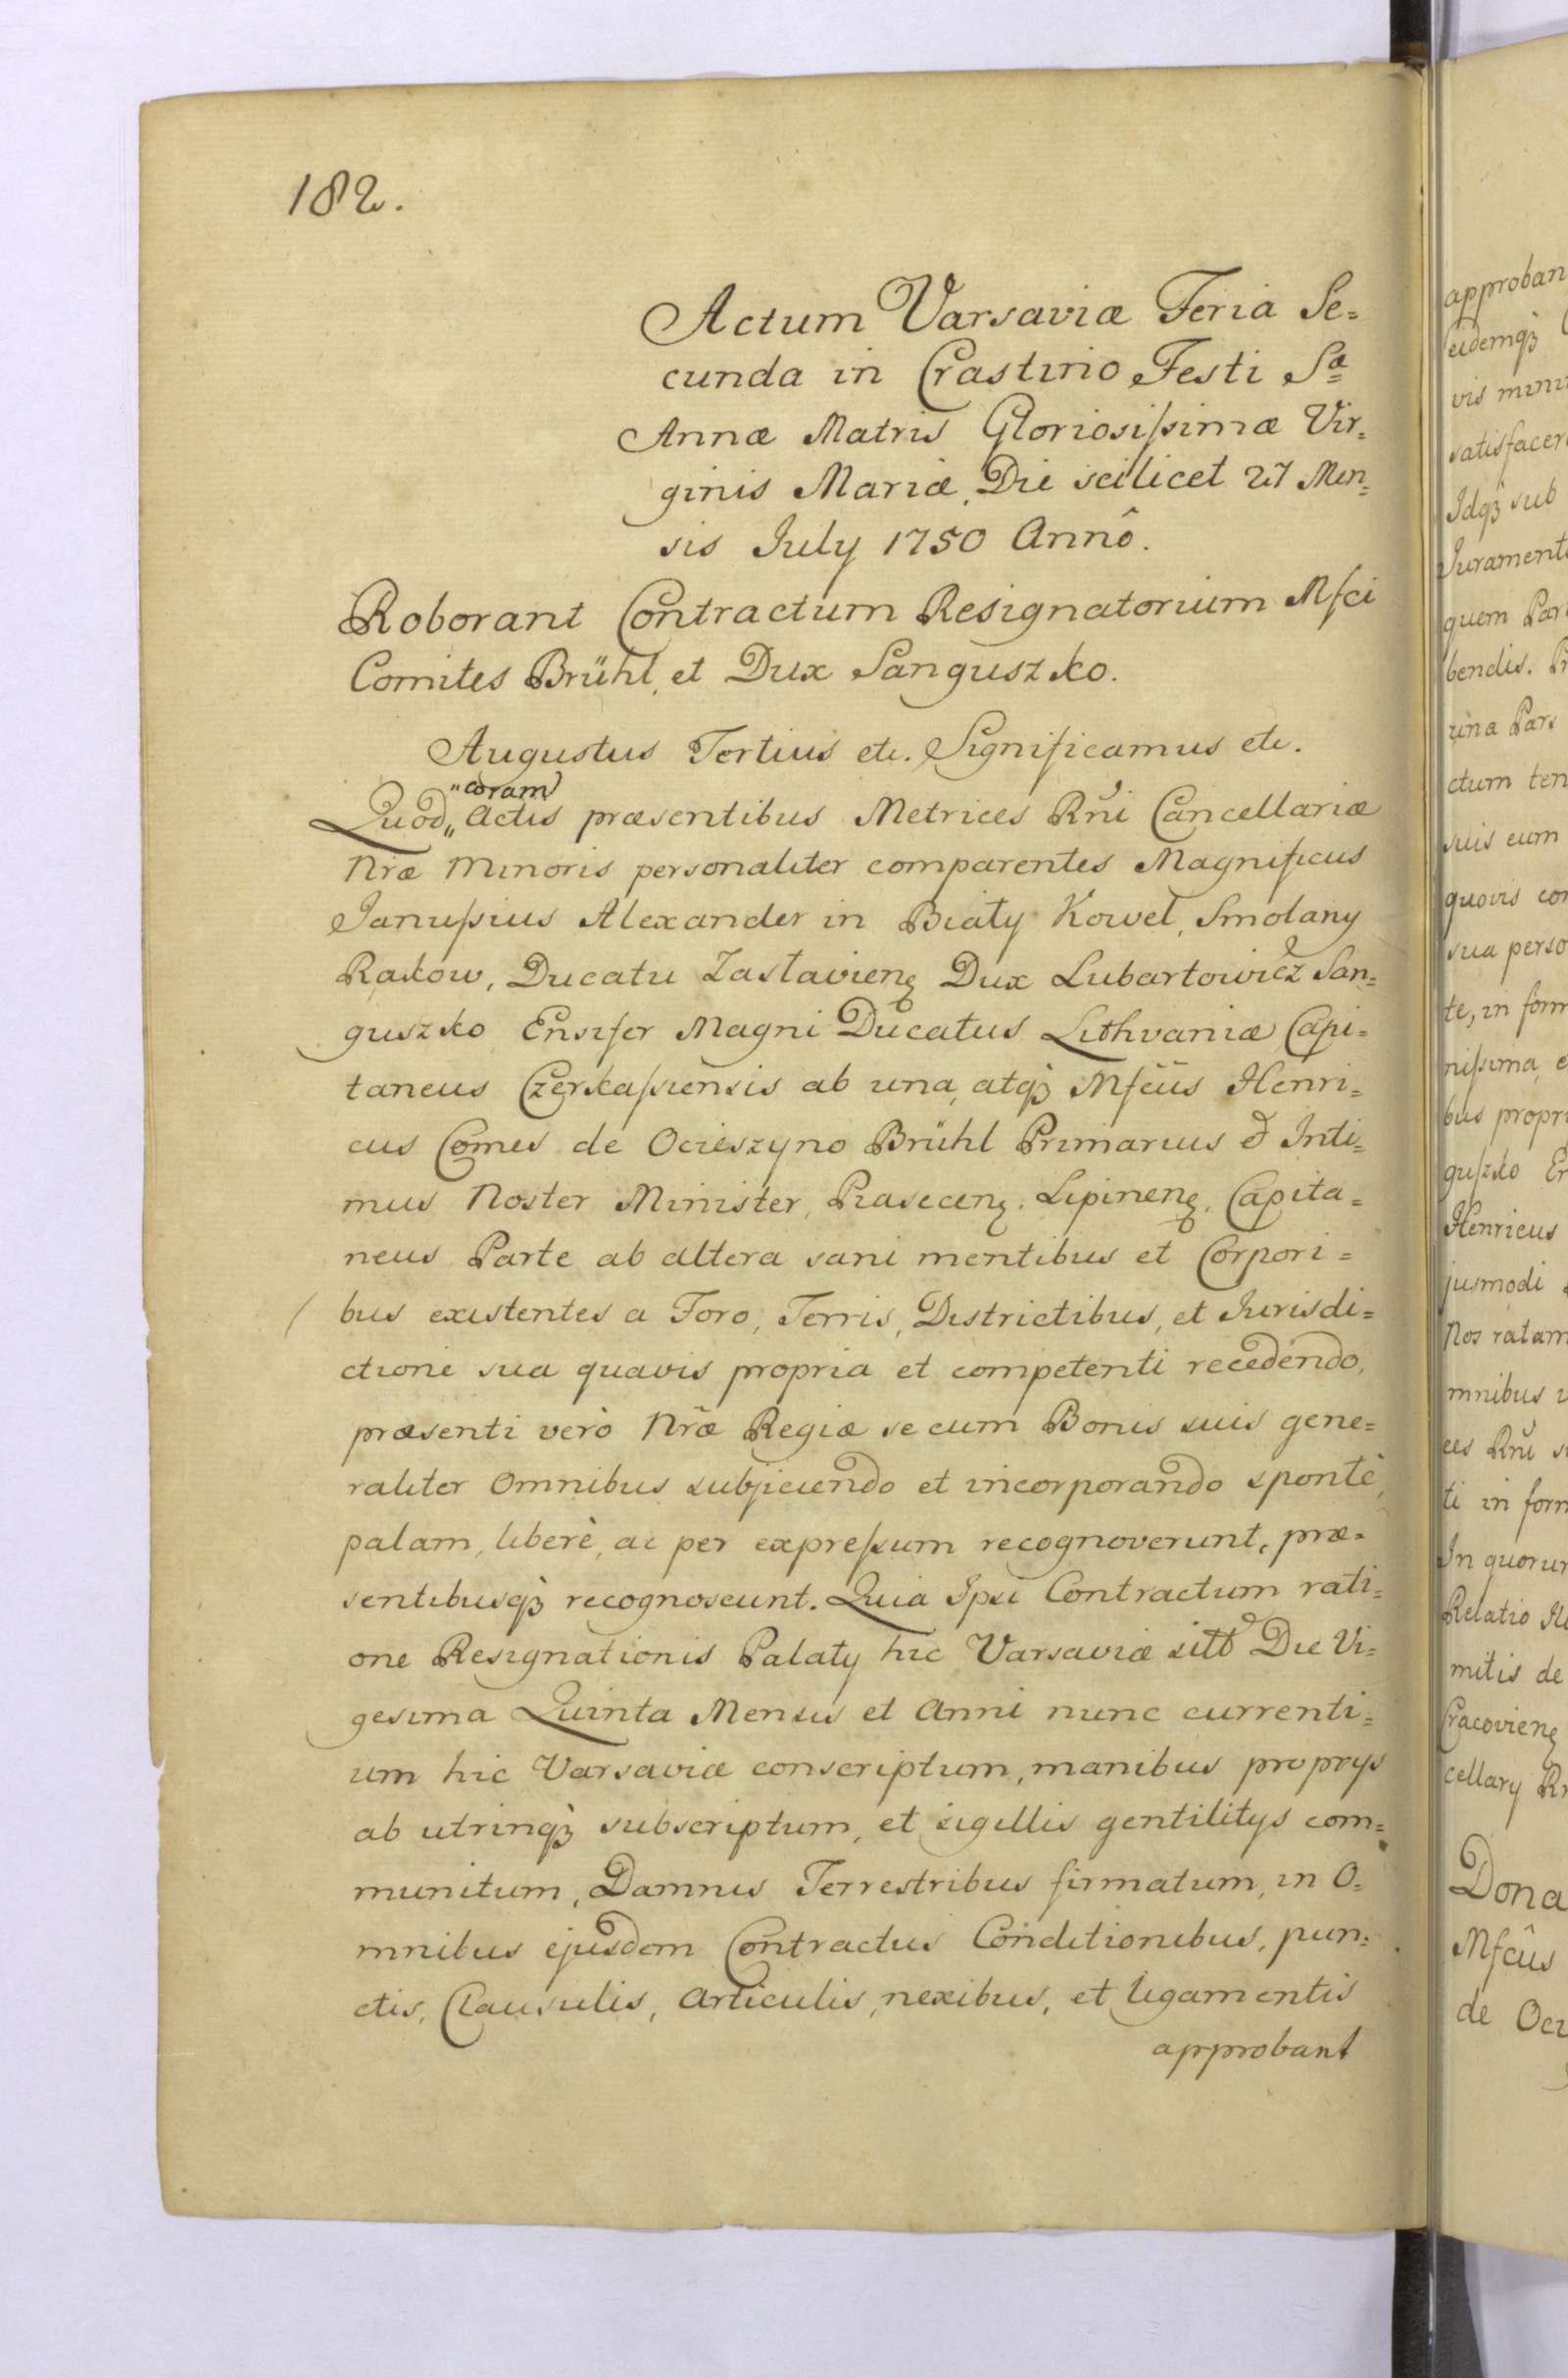 182.
Actum Varsaviæ Feria Se=
cunda in Crastino Festi Sæ
Annæ Matris Gloriosissimæ Vir=
ginis Mariæ, Die scilicet 27 Men=
sis July 1750 Annô.
Roborant Contractum Resignatorium Mfci
Comites Brühl, et Dux Sanguszko.
Augustus Tertius etc. Significamus etc.
"coram
Quod „ Actis præsentibus Metrices Rñi Cancellariæ
Nræ Minoris personaliter comparentes Magnificus
Janussius Alexander in Biały Kowel, Smolany
Rakow, Ducatu Zaslavienȝ Dux Lubartowicz San=
guszko Ensifer Magni Ducatus Lithvaniæ Capi=
taneus Czerkassiensis ab una, atqȝ Mfcũs Henri=
cus Comes de Ocieszyno Brühl Primarius & Inti=
mus Noster Minister, Piasecenȝ. Lipinenȝ. Capita=
neus Parte ab altera sani mentibus et Corpori=
bus existentes a Foro, Terris, Districtibus, et Jurisdi=
ctione sua quavis propria et competenti recedendo,
præsenti verò Nrãe Regiæ se cum Bonis suis gene=
raliter Omnibus subjiciendo et incorporando spontè,
palam, liberè, ac per expressum recognoverunt, præ=
sentibusqȝ recognoscunt. Quia Ipsi Contractum rati=
one Resignationis Palaty hic Varsaviæ sitt Die Vi=
gesima Quinta Mensis et Anni nunc currenti=
um hic Varsaviæ conscriptum, manibus proprys
ab utrinqȝ subscriptum, et sigillis gentilitys com=
munitum, Damnis Terrestribus firmatum, in O=
mnibus ejusdem Contractus Conditionibus, pun=
ctis, Clausulis, Articulis, nexibus, et ligamentis
approbant
approban
eidemqȝ
vis mini
satisfacer
Idqȝ sub
Jurament
quem Par
bendis.
una Pars
ctum ten
suis eum
quovis con
sua perso
te, in form
nissima, e
bus propri
guszko En
Henricus
jusmodi
Nos ratam
mnibus
ces Rñi
ti in form
In quorum
Relatio Il
mitis de
Cracovienȝ
cellary R
Dona
Mfcûs
de Oci